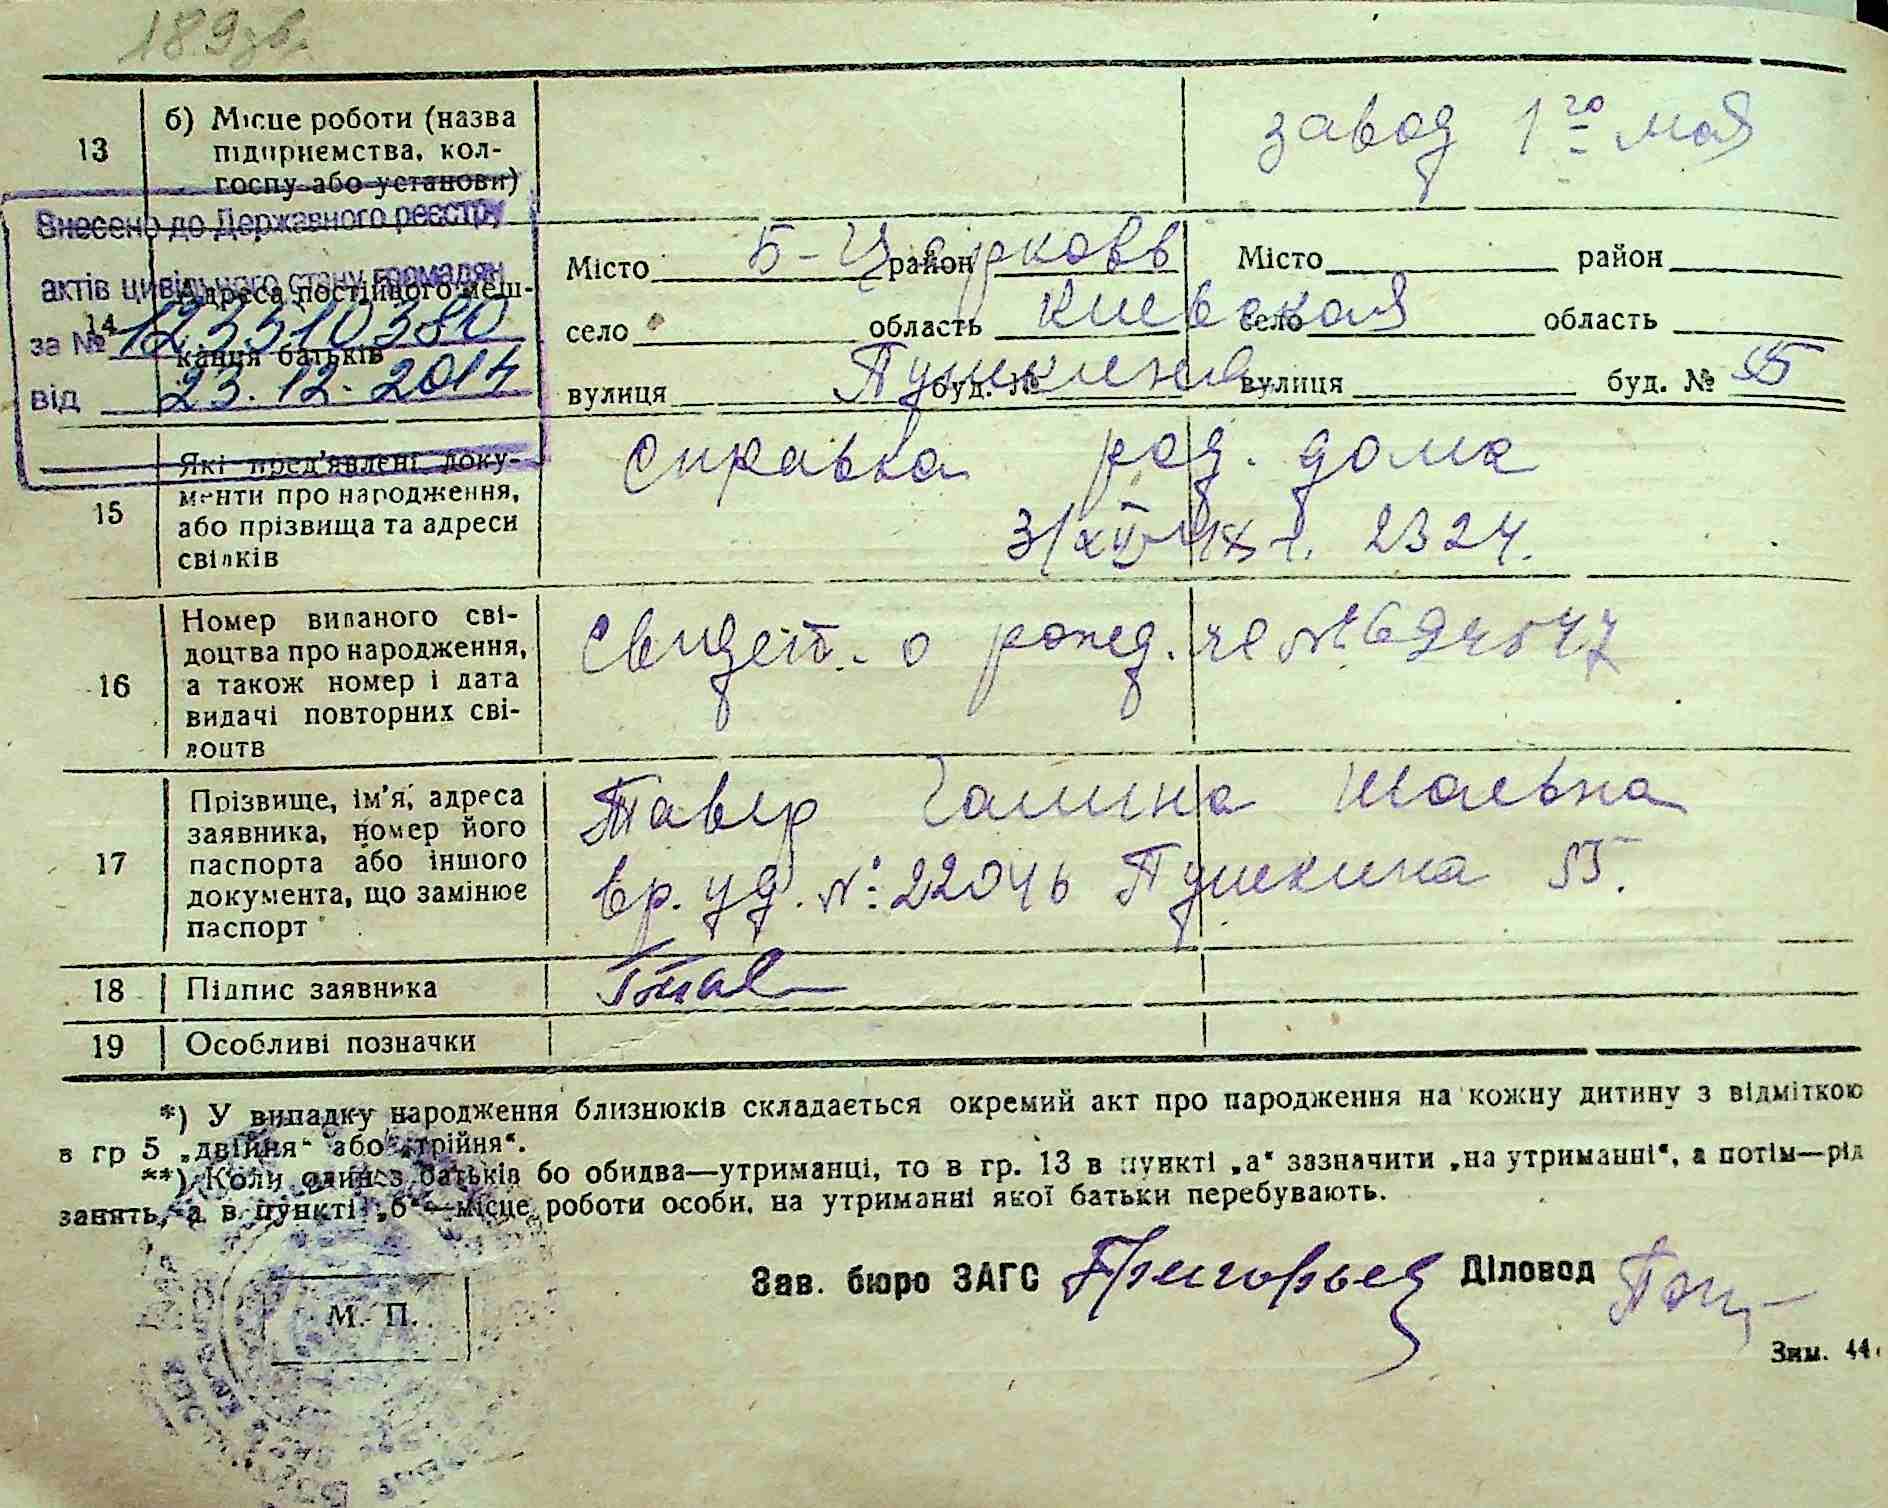 189зв.
13 б) Місце роботи (назва підприємства, колгоспу або установи)
завод 1го мая
Внесено до Державного реєстру
актів цивільного стану громадян
за № 12331О380
від 23.12.2014
14 Адреса постійного меш-
кання батьків
Місто Б-Церковь район Місто район
село область Киевская село область
вулиця Пушкина буд. № вулиця буд. № 55
15 Які пред'явлені доку-
менти про народження,
або прізвища та адреси
свідків
Справка род. дома
2324.
16 Номер виданого сві-
доцтва про народження,
а також номер і дата
видачі повторних сві-
доцтв
Свидет. о рожд. ЧЯ № 694547
17 Прізвище, ім'я, адреса
заявника, номер його
паспорта або іншого
документа, що замінює
паспорт
Тавер Галина
вр. уд. №: 22046 Пушкина 55.
18 Підпис заявника
19 Особливі позначки
*) У випадку народження близнюків складається окремий акт про народження на кожну дитину з відміткою
в гр 5 „двійня" або „трійня“.
**) Коли один з батьків бо обидва—утриманці, то в гр. 13 в пункті „а“ зазначити „на утриманні“, а потім—рід
занять, а в пункті „б“—місце роботи особи, на утриманні якої батьки перебувають.
Зав. бюро ЗАГС Григорьев Діловод
М. П.
Зим. 44